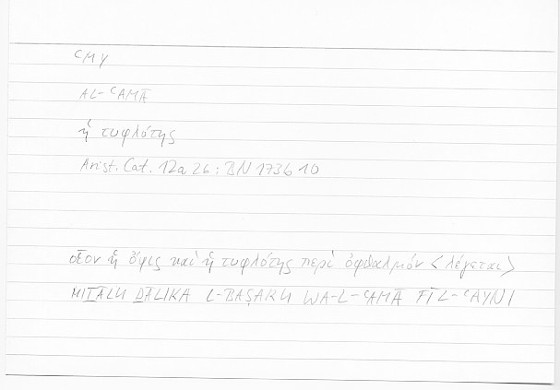 ᶜMY
AL-ᶜAMĀ
ἡ τυφλότης
Arist. Cat. 12a 26 : BN 1736 10
οἷον ἡ ὄψις καὶ ἡ τυφλότης περὶ ὀφθαλμόν <λέγεται>
MIṮĀLU ḎĀLIKA L-BAṢARU WA-L-ᶜAMĀ FĪ L-ᶜAYNI